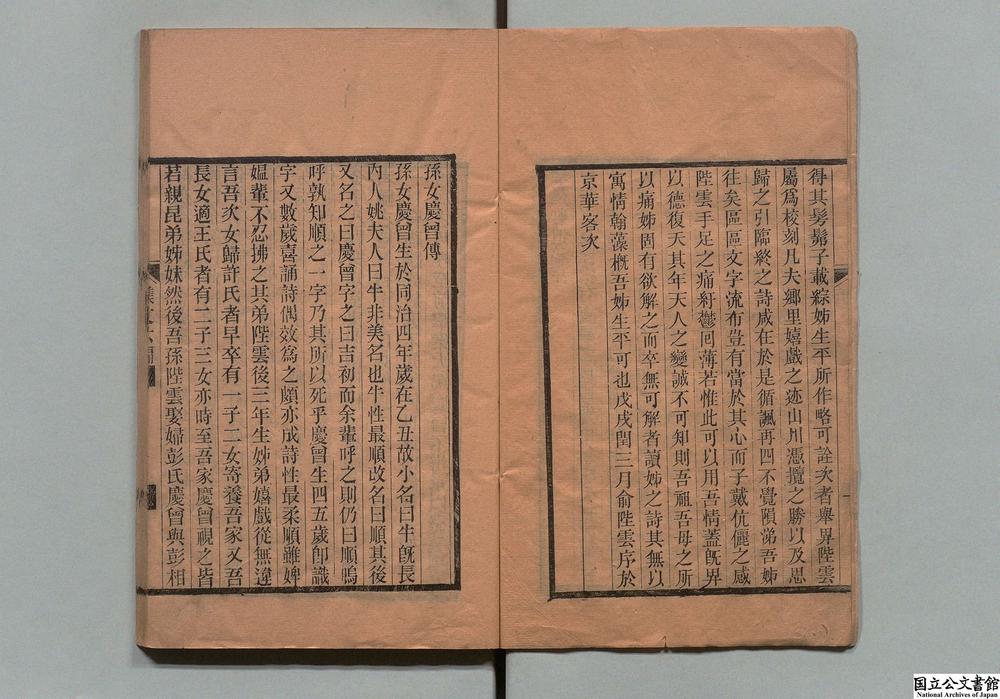 得其髣髴子載綜姊生平所作略可詮次者舉畀陛雲
屬爲校刻凡夫鄉里嬉戲之迹山川憑攬之勝以及思
歸之引臨終之詩咸在於是循諷再四不覺隕涕吾姊
往矣區區文字流布豈有當於其心而子戴伉儷之感
陛雲手足之痛紆鬱回薄若惟此可以用吾情蓋旣畀
以德復夭其年天人之變誠不可知則吾祖吾母之所
以痛姊固有欲解之而卒無可解者讀姊之詩其無以
寓情翰藻槪吾姊生平可也戊戌閏三月俞陛雲序於
京華客次
孫女慶曾傳
孫女慶曾生於同治四年歲在乙丑故小名曰牛旣長
內人姚夫人曰牛非美名也牛性最順改名曰順其後
又名之曰慶曾字之曰吉初而余輩呼之則仍曰順嗚
呼孰知順之一字乃其所以死乎慶曾生四五歲卽識
字又數歲喜誦詩偶效爲之頗亦成詩性最柔順雖婢
媼輩不忍拂之其弟陛雲後三年生姊弟嬉戲從無違
言吾次女歸許氏者早卒有一子二女寄養吾家又吾
長女適王氏者有二子三女亦時至吾家慶曾視之皆
若親昆弟姊妹然後吾孫陛雲娶婦彭氏慶曾與彭相
国立公文書館
National Archives of Japan